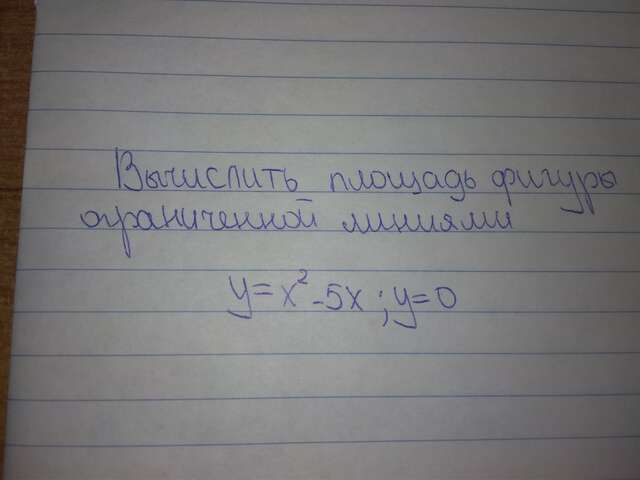 Вычислить площадь фигуры
ограниченной линиями
y=x²-5x; y=0